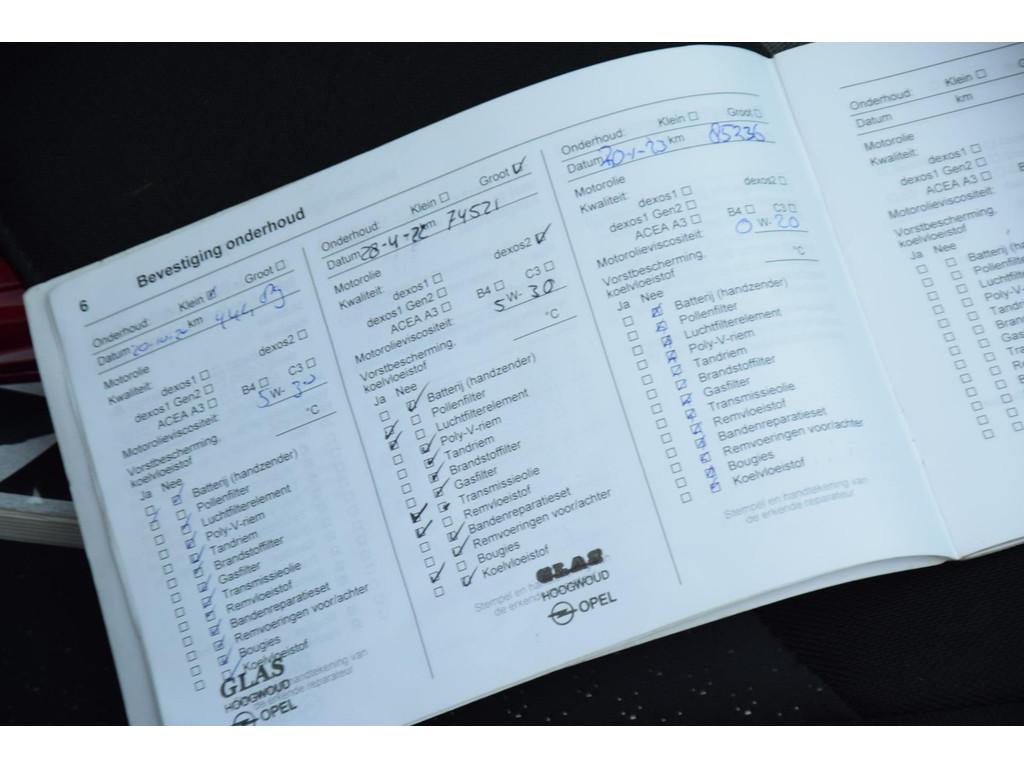 6
Bevestiging onderhoud
Onderhoud: Klein ☑ Groot ☐
Datum km
Motorolie
Kwaliteit: dexos1 ☐ dexos2 ☐
dexos1 Gen2 ☐
ACEA A3 ☐ B4 ☐ C3 ☐
Motorolieviscositeit: 5 W- 30
Vorstbescherming, °C
koelvloeistof
Ja Nee
Batterij (handzender)
Pollenfilter
Luchtfilterelement
Poly-V-riem
Tandriem
Brandstoffilter
Gasfilter
Transmissieolie
Remvloeistof
Bandenreparatieset
Remvoeringen voor/achter
Bougies
Koelvloeistof
Stempel en handtekening van
de erkende reparateur
GLAS
HOOGWOUD
OPEL
Onderhoud: Klein ☐ Groot ☑
Datum 28-4-22 km 74521
Motorolie
Kwaliteit: dexos1 ☐ dexos2 ☑
dexos1 Gen2 ☐
ACEA A3 ☐ B4 ☐ C3 ☐
Motorolieviscositeit: 5 W- 30
Vorstbescherming, °C
koelvloeistof
Ja Nee
Batterij (handzender)
Pollenfilter
Luchtfilterelement
Poly-V-riem
Tandriem
Brandstoffilter
Gasfilter
Transmissieolie
Remvloeistof
Bandenreparatieset
Remvoeringen voor/achter
Bougies
Koelvloeistof
Stempel en
de erkende
GLAS
HOOGWOUD
OPEL
Onderhoud: Klein ☐ Groot ☐
Datum km 85236
Motorolie
Kwaliteit: dexos1 ☐ dexos2 ☐
dexos1 Gen2 ☐
ACEA A3 ☐ B4 ☐ C3 ☐
Motorolieviscositeit: 0 W- 20
Vorstbescherming, °C
koelvloeistof
Ja Nee
Batterij (handzender)
Pollenfilter
Luchtfilterelement
Poly-V-riem
Tandriem
Brandstoffilter
Gasfilter
Transmissieolie
Remvloeistof
Bandenreparatieset
Remvoeringen voor/achter
Bougies
Koelvloeistof
Stempel en handtekening van
de erkende reparateur
Onderhoud: Klein ☐
Datum km
Motorolie
Kwaliteit: dexos1 ☐
dexos1 Gen2 ☐
ACEA A3 ☐
Motorolieviscositeit:
Vorstbescherming,
koelvloeistof
Ja Nee